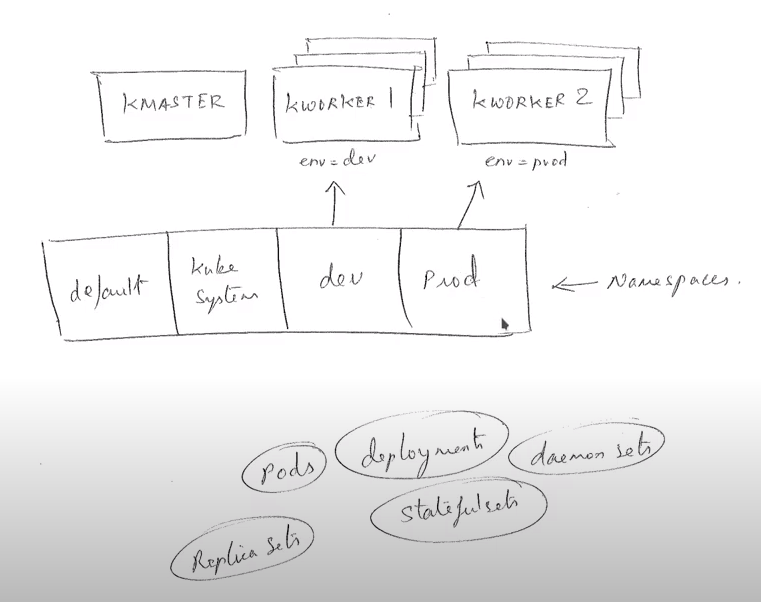 KMASTER
KWORKER 1
KWORKER 2
env = dev
env = prod
default
Kube
System
dev
Prod
Namespaces.
Pods
deployments
daemon sets
Statefulsets
Replica sets